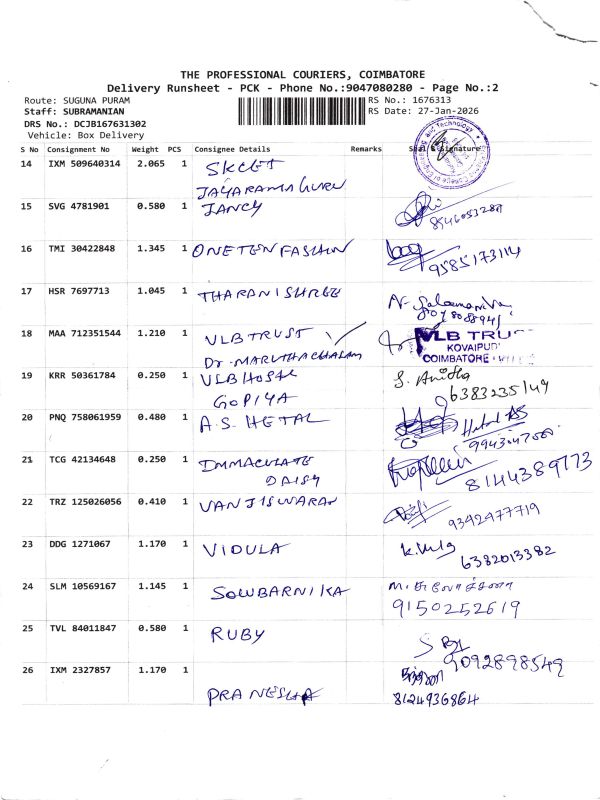 THE PROFESSIONAL COURIERS, COIMBATORE
Delivery Runsheet - PCK - Phone No.:9047080280 - Page No.:2
Route: SUGUNA PURAM RS No.: 1676313
Staff: SUBRAMANIAN RS Date: 27-Jan-2026
DRS No.: DCJB167631302
Vehicle: Box Delivery
S No Consignment No Weight PCS Consignee Details Remarks Seal & Signature
14 IXM 509640314 2.065 1 SKCET
JAYARAMAGURU
15 SVG 4781901 0.580 1 JANCY
16 TMI 30422848 1.345 1 ONETEN FASHION
9585173114
17 HSR 7697713 1.045 1 THARANISHREE
18 MAA 712351544 1.210 1 VLB TRUST VLB TRUST
KOVAIPUDUR
Dr. MARUTHACHALAM COIMBATORE
19 KRR 50361784 0.250 1 VLB HOSTL S. Anitha
GOPIYA 6383235149
20 PNQ 758061959 0.480 1 A.S. HETAL Hetal AS
21 TCG 42134648 0.250 1 IMMACULATE
DAISY 8144389773
22 TRZ 125026056 0.410 1 VANJISWARAN
9342477719
23 DDG 1271067 1.170 1 VIDULA
6382013382
24 SLM 10569167 1.145 1 SOWBARNIKA
9150252619
25 TVL 84011847 0.580 1 RUBY
9092898549
26 IXM 2327857 1.170 1
PRANESHA 8124936864